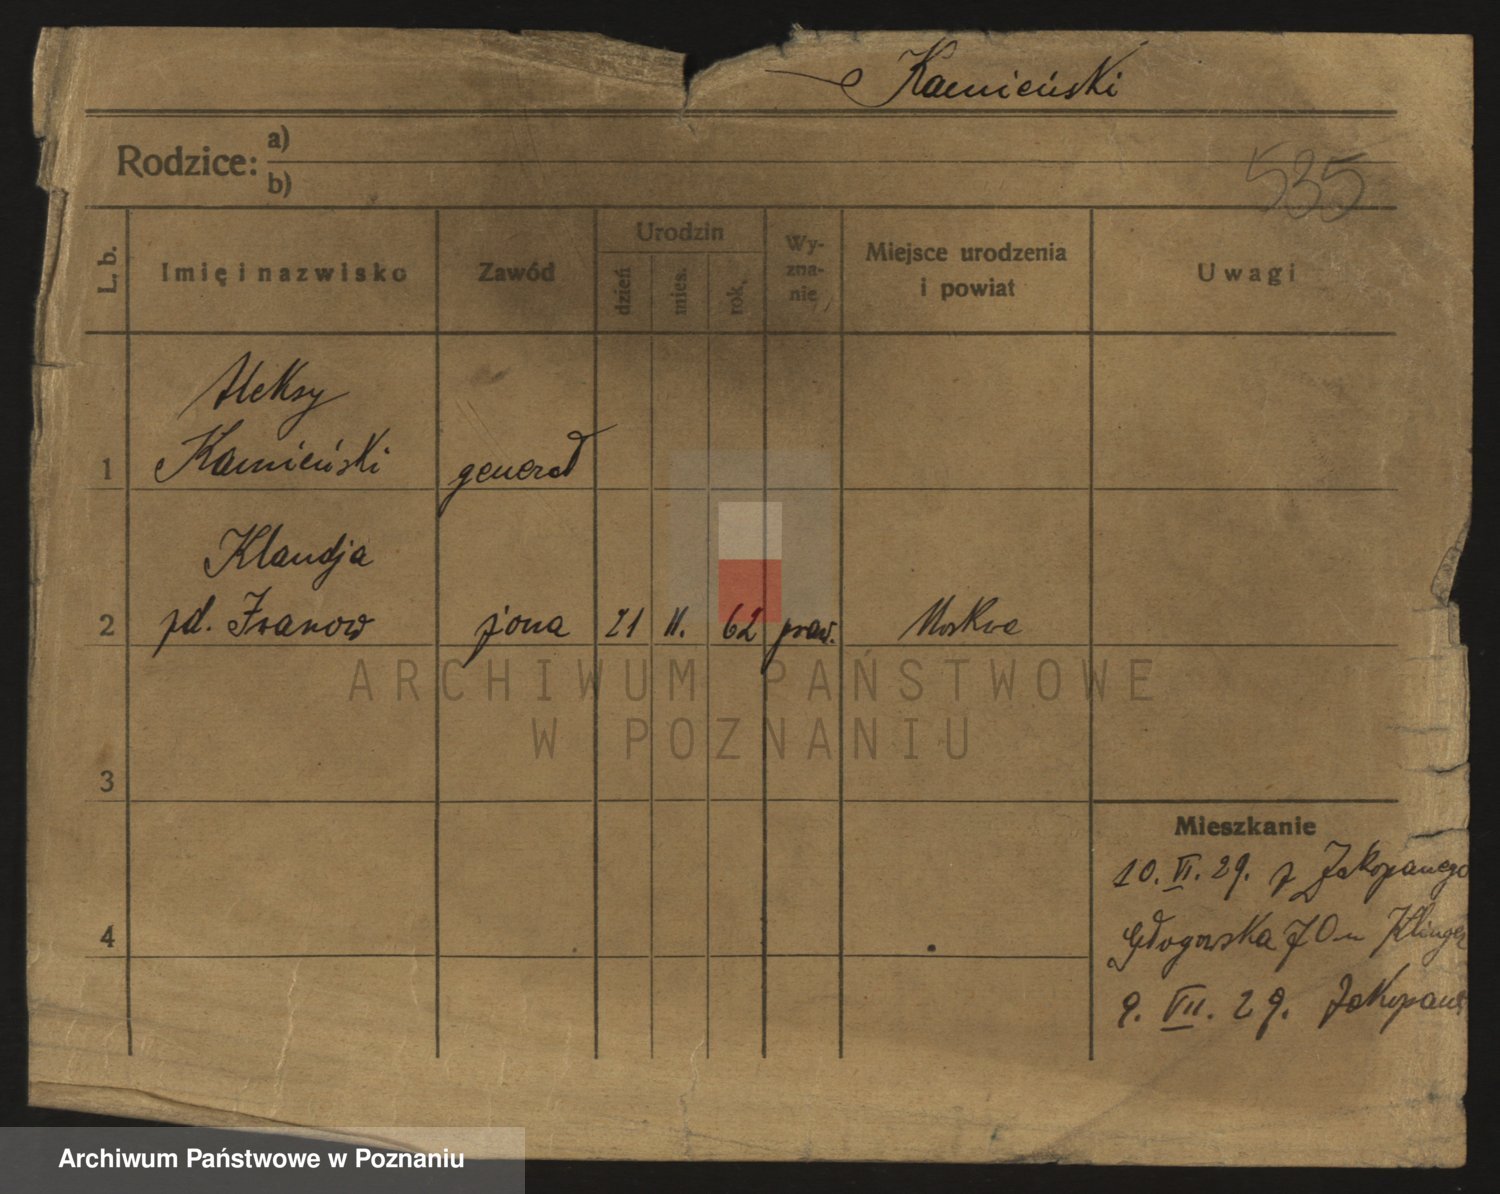 Kamieński
Rodzice:
a)
b)
535
L. b.
Imię i nazwisko
Zawód
Urodzin
dzień
mies.
rok
Wy-
zna-
nie
Miejsce urodzenia
i powiat
Uwagi
Aleksy
1 Kamieński generał
Klaudja
2 zd. Iwanow żona 21 II. 62 praw. Moskwa
3
Mieszkanie
10. VI. 29. z Zakopanego
4 Głogowska 70 u Klinger
9. VII. 29. Zakopane
ARCHIWUM PAŃSTWOWE
W POZNANIU
Archiwum Państwowe w Poznaniu